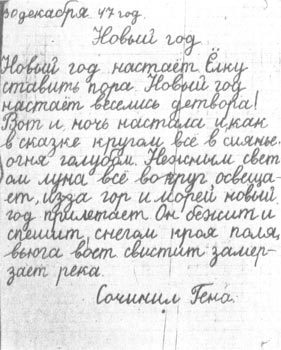 30 декабря 47 год.
Новый год
Новый год настаёт Ёлку
ставить пора. Новый год
настаёт веселись детвора!
Вот и ночь настала и, как
в сказке кругом всё в сиянье.
огня голубом. Нежным свет
ом луна всё вокруг освеща-
ет, из за гор и морей новый
год прилетает. Он бежит и
спешит, снегом кроя поля,
вьюга воет свистит замер-
зает река.
Сочинил Гена.